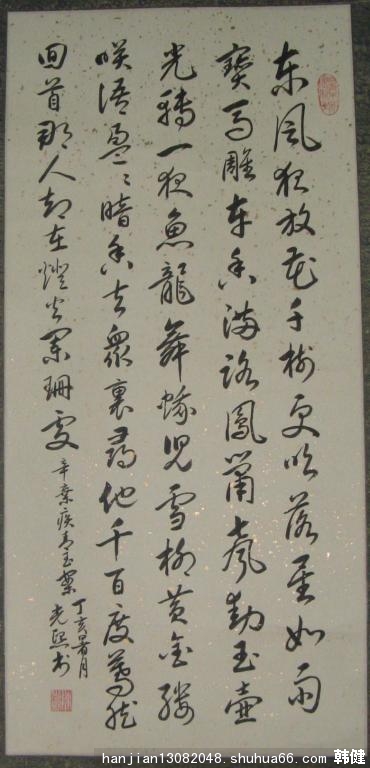 东风夜放花千树更吹落星如雨
寶马雕车香满路鳳箫声动玉壶
光转一夜魚龍舞蛾児雪柳黄金缕
咲语盈々暗香去衆裏寻他千百度蓦然
回首那人却在燈火阑珊处
辛弃疾青玉案
丁亥暑月
光熙书
hanjian13082048.shuhua66.com 韩健